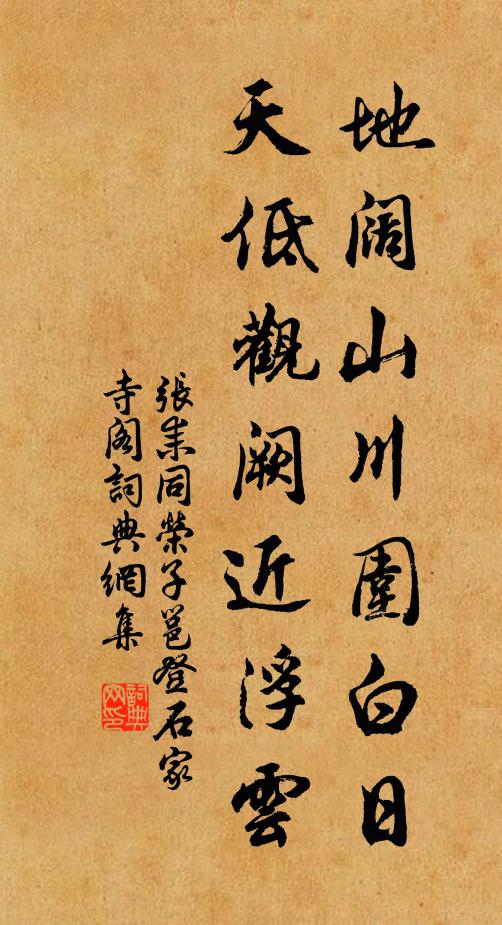 地阔山川圍白日
天低觀闕近浮雲
張耒同榮子邕登石家
寺閣詞典網集
詞典网印